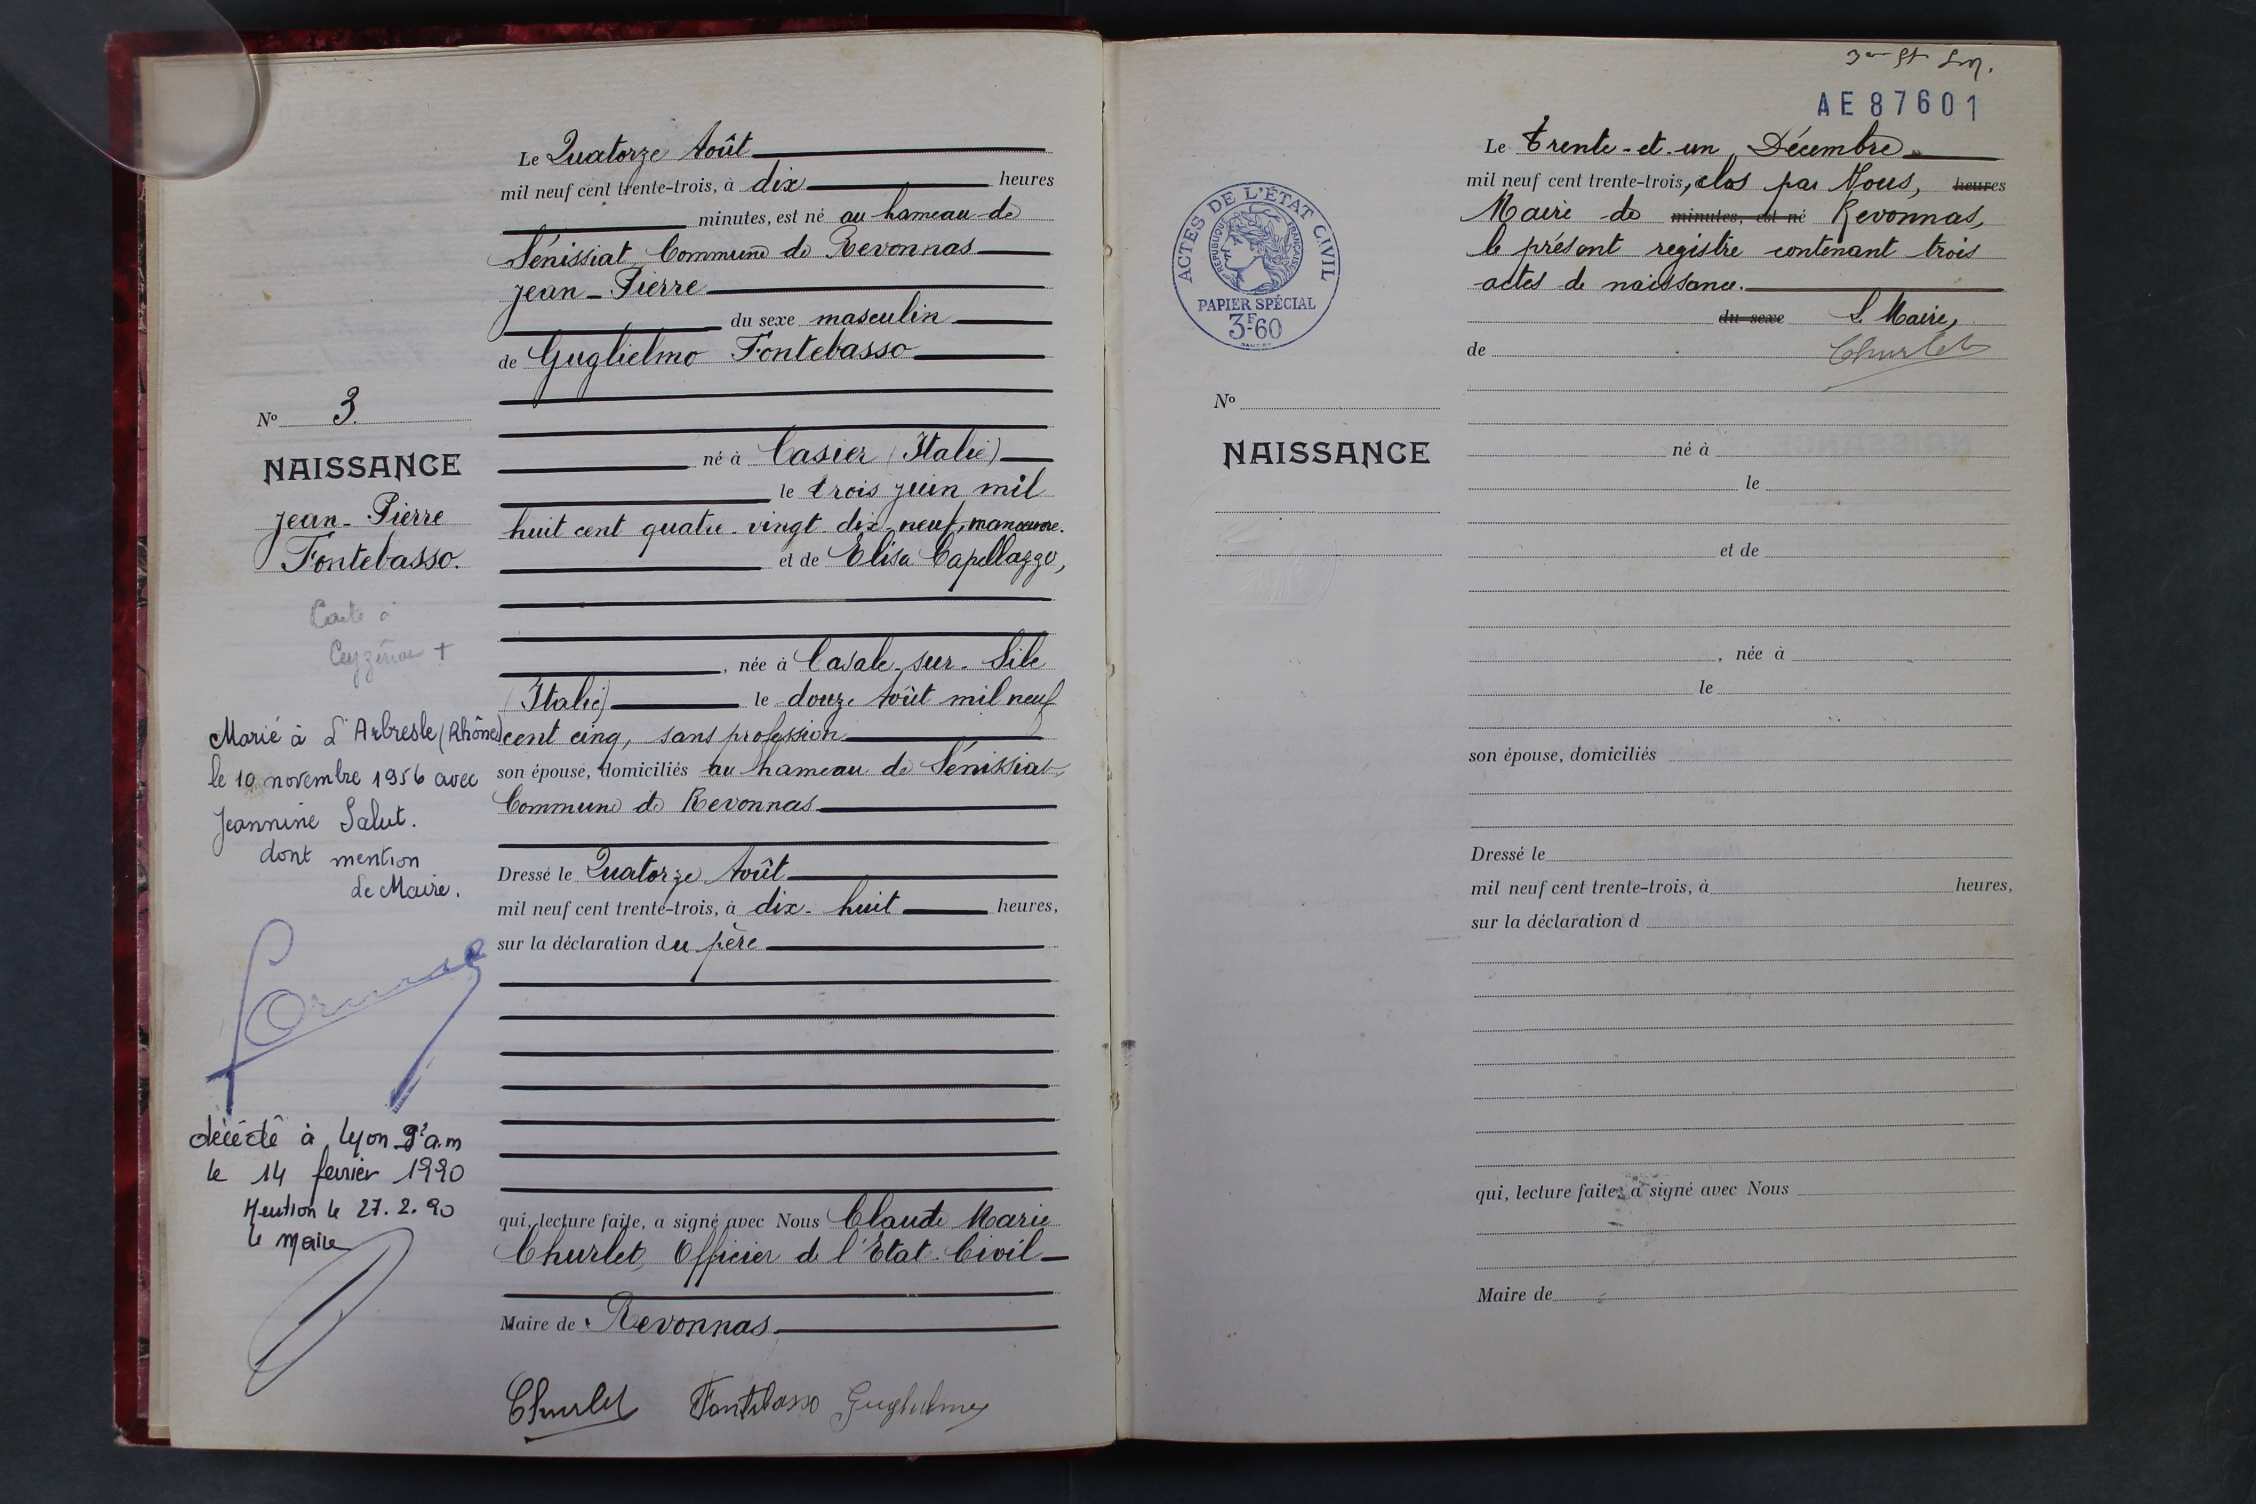 N° 3.
NAISSANCE
Jean-Pierre
Fontebasso.
Carte à
Ceyzériat +
Marié à L'Arbresle (Rhône)
le 10 novembre 1956 avec
Jeannine Salut.
dont mention
Le Maire.
décédé à Lyon 9è am
le 14 fevrier 1990
Mention le 27.2.90
le maire
Le Quatorze Août
mil neuf cent trente-trois, à dix heures
minutes, est né au hameau de
Sénissiat Commune de Revonnas
Jean-Pierre
du sexe masculin
de Guglielmo Fontebasso
né à Casier (Italie)
le trois juin mil
huit cent quatre-vingt dix-neuf, manœuvre.
et de Elisa Capellazzo,
, née à Casale-sur-Sile
(Italie) le douze Août mil neuf
cent cinq, sans profession
son épouse, domiciliés au hameau de Sénissiat
Commune de Revonnas
Dressé le Quatorze Août
mil neuf cent trente-trois, à dix-huit heures,
sur la déclaration du père
qui, lecture faite, a signé avec Nous Claude Marie
Churlet, Officier de l'Etat-Civil
Maire de Revonnas
Churlet Fontebasso Guglielmo
AE 87601
ACTES DE L'ÉTAT CIVIL
RÉPUBLIQUE FRANÇAISE
PAPIER SPÉCIAL
3F.60
N°
NAISSANCE
Le Trente-et-un Décembre
mil neuf cent trente-trois, clos par Nous, heures
Maire de minutes, est né Revonnas,
le présent registre contenant trois
actes de naissance.
du sexe Le Maire,
de Churlet
né à
le
et de
, née à
le
son épouse, domiciliés
Dressé le
mil neuf cent trente-trois, à heures,
sur la déclaration d
qui, lecture faite, a signé avec Nous
Maire de